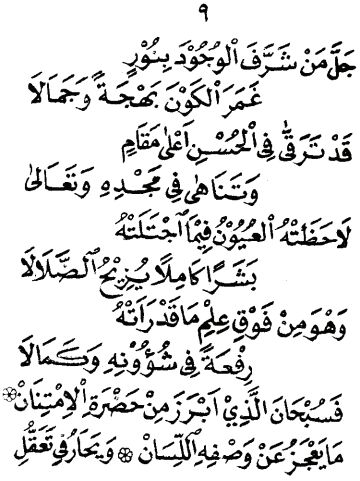 ٩
جَلَّ مَنْ شَرَّفَ الْوُجُوْدَ بِنُوْرٍ
غَمَرَ الْكَوْنَ بَهْجَةً وَجَمَالَا
قَدْ تَرَقّٰى فِي الْحُسْنِ اَعْلٰى مَقَامٍ
وَتَنَاهٰى فِي مَجْدِهِ وَتَعَالٰى
لَاحَظَتْهُ الْعُيُوْنُ فِيْمَا اجْتَلَتْهُ
بَشَرًا كَامِلًا يُزِيْحُ الضَّلَالَا
وَهْوَ مِنْ فَوْقِ عِلْمِ مَا قَدْرَاَتْهُ
رِفْعَةً فِي شُؤُوْنِهِ وَكَمَالَا
فَسُبْحَانَ الَّذِيْ اَبْرَزَ مِنْ حَضْرَةِ الْاِمْتِنَانْ ۞
مَا يَعْجَزُ عَنْ وَصْفِهِ اللِّسَانْ ۞ وَيَحَارُ فِي تَعَقُّلِ